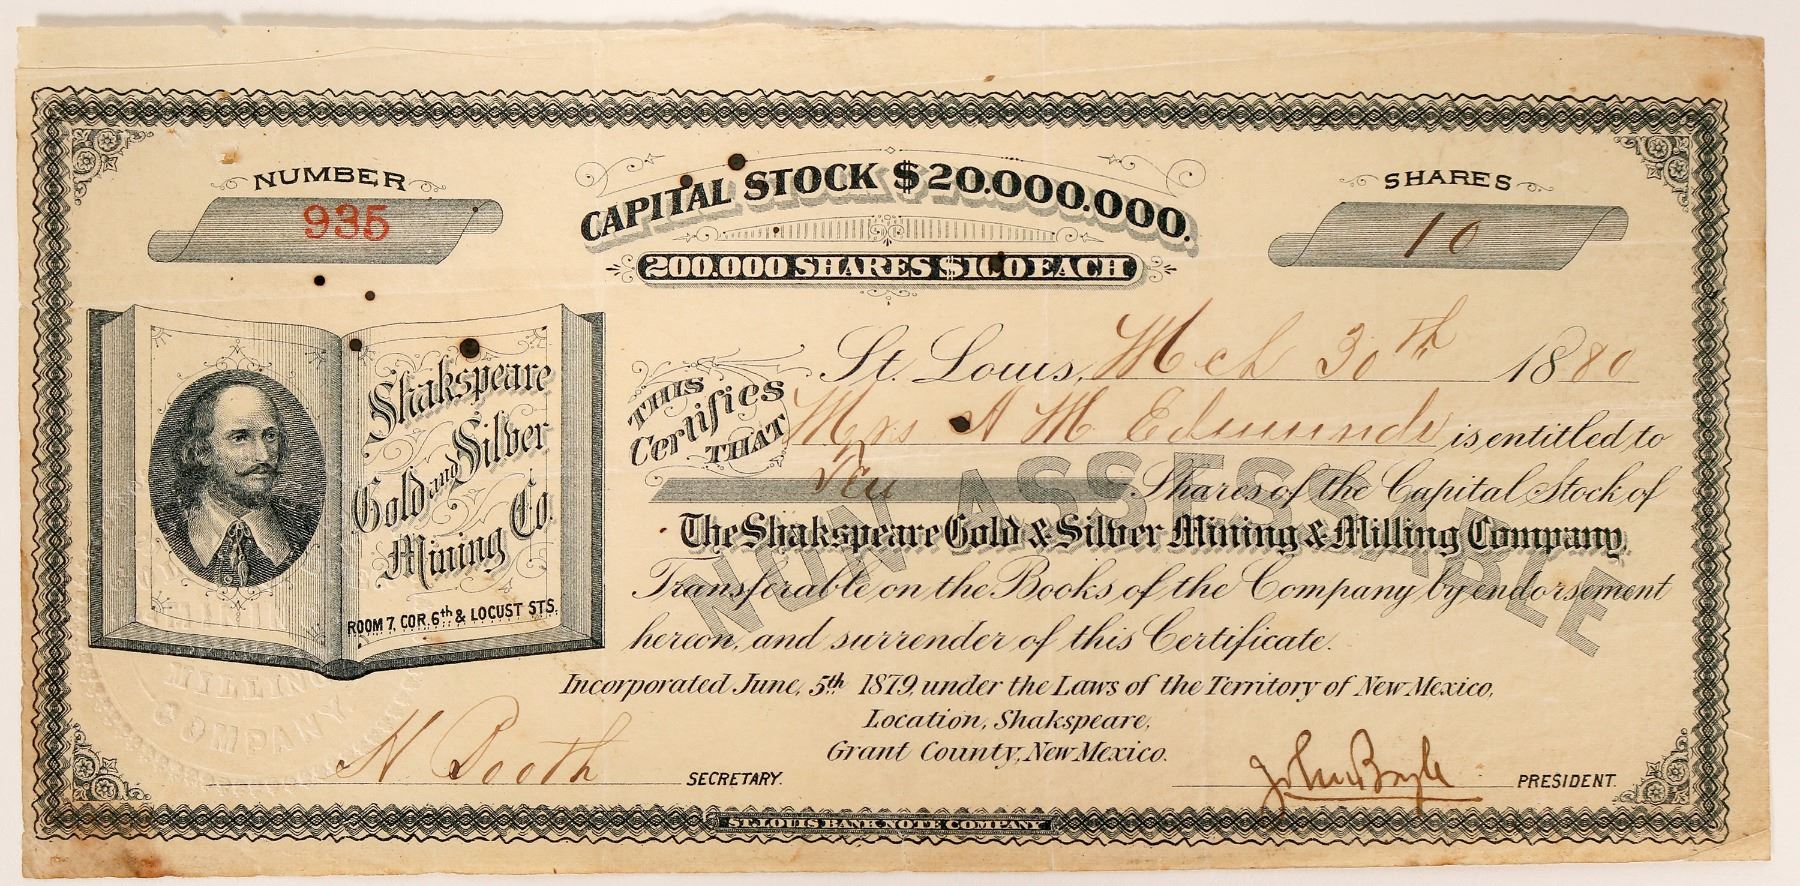 NUMBER
935
CAPITAL STOCK $20.000.000.
200.000 SHARES $100 EACH
SHARES
10
Shakspeare
Gold and Silver
Mining Co.
ROOM 7, COR. 6th & LOCUST STS.
St. Louis, Mch 30th 1880
THIS Certifies THAT Mrs A M Edmunds is entitled to
Ten Shares of the Capital Stock of
The Shakspeare Gold & Silver Mining & Milling Company
Transferable on the Books of the Company by endorsement
hereon, and surrender of this Certificate.
NON ASSESSABLE
Incorporated June, 5th 1879, under the Laws of the Territory of New Mexico,
Location, Shakspeare,
Grant County, New Mexico.
MILLING
COMPANY
N Booth SECRETARY.
John Boyle PRESIDENT.
ST. LOUIS BANK NOTE COMPANY